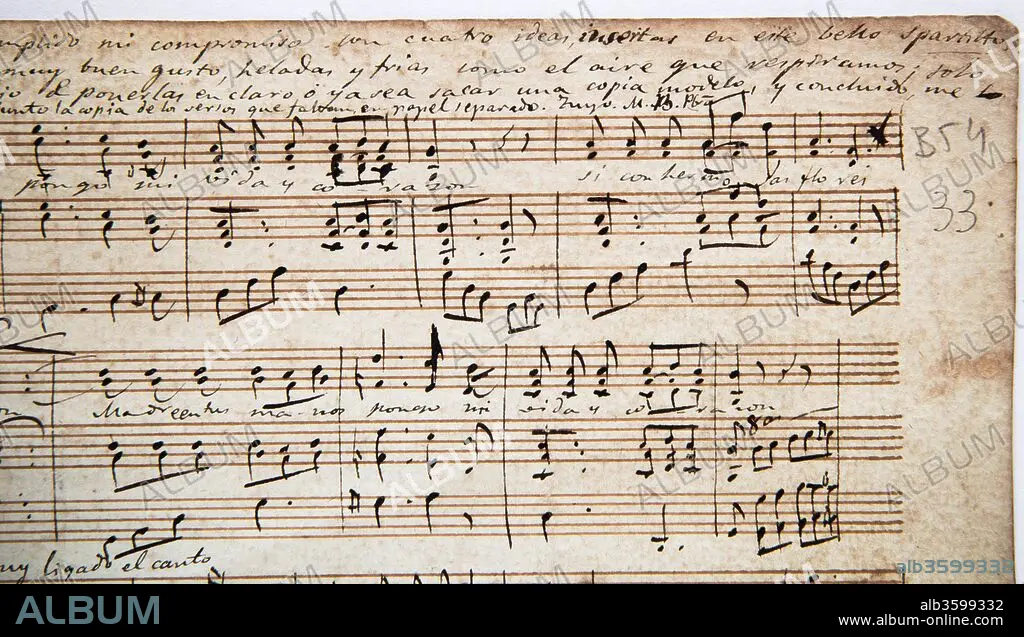 mplido mi compromiso con cuatro ideas, inseitas en este bello Spartitto
muy buen gusto heladas y frias como el aire que respiramos; solo
io d ponerlas en claro ó ya sea sacar una copia modelo, y concluido, me
unto la copia de lo serios que faltan, en papel separado.
B54
pongo mi vida y co-razon si con hermo, las flores
33
Madreentus ma-nos pongo mi vida y co-razon
8a
muy ligado el canto
ALBUM
alb3599332
ALBUM
alb3599332
www.album-online.com